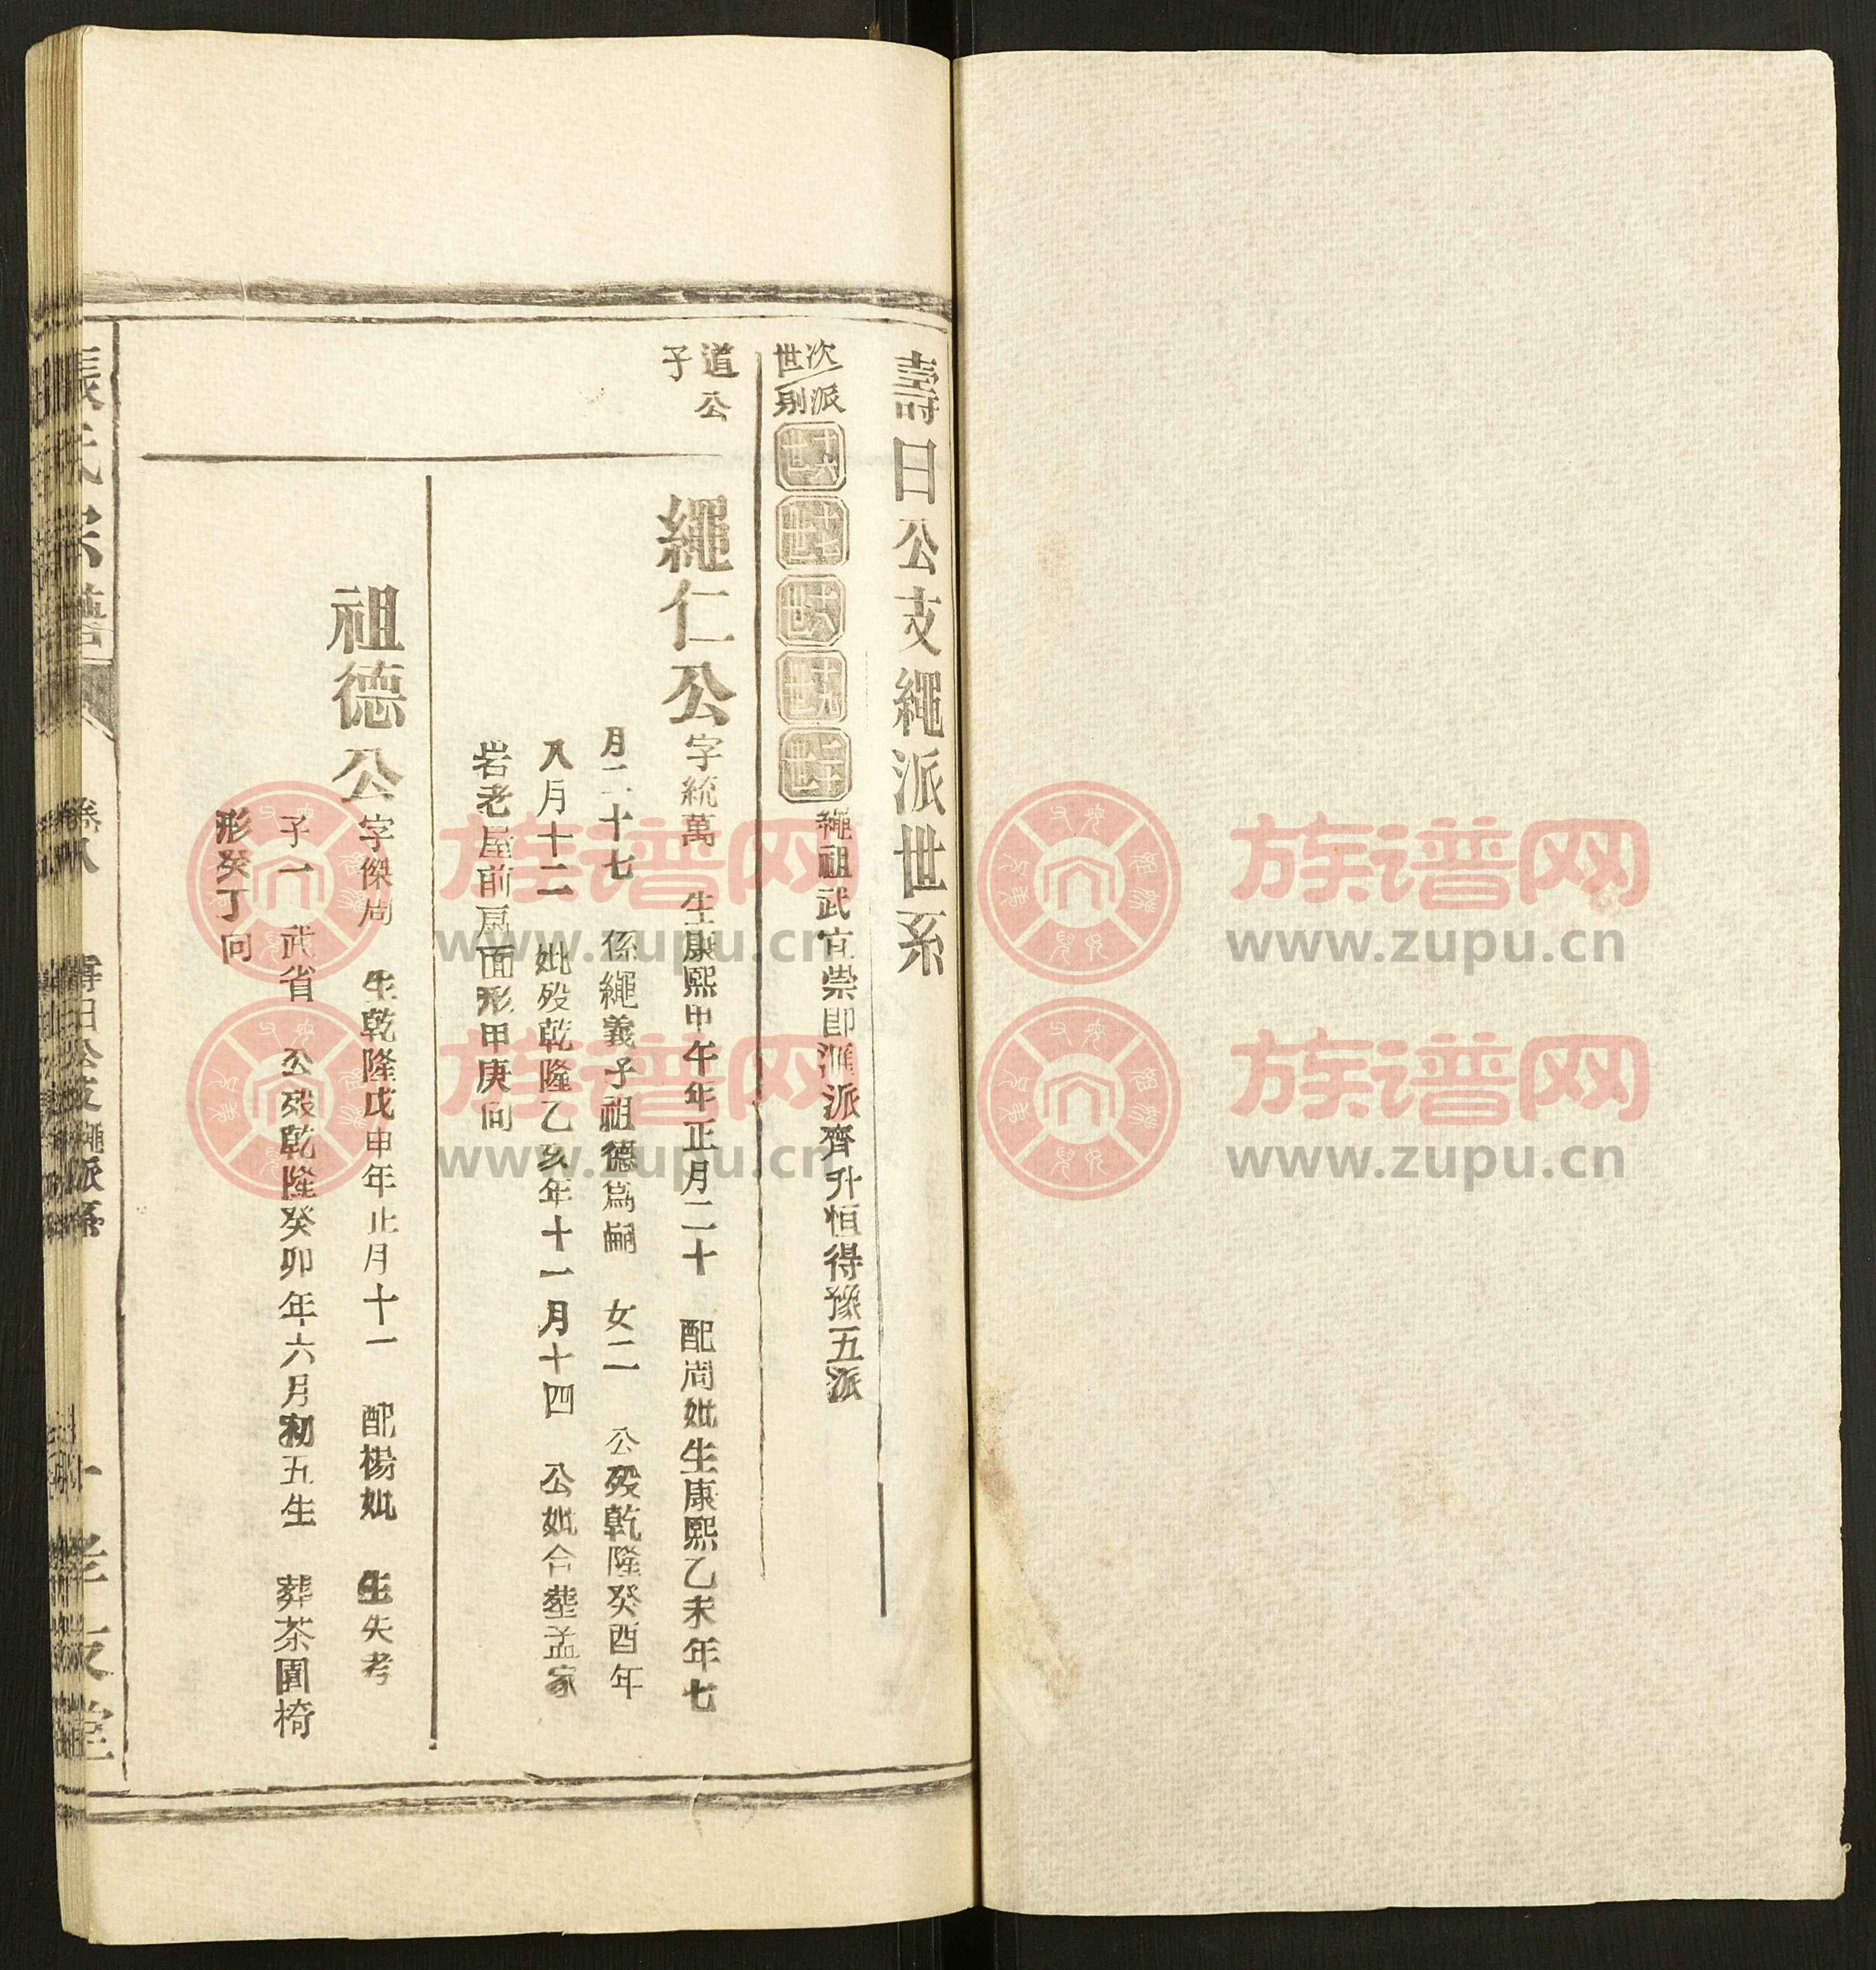 壽日公支繩派世系
次派
世別
繩祖武宜崇卽滙派齊升恒得豫五派
道公
子
繩仁公
字統萬 生康熙甲午年正月二十 配周妣生康熙乙未年七
月二十七 係繩義子祖德爲嗣 女二 公歿乾隆癸酉年
八月十二 妣歿乾隆乙亥年十一月十四 公妣合塟孟家
岩老屋前扇面形甲庚向
祖德公
字傑尚 生乾隆戊申年正月十一 配楊妣 生失考
子一 武省 公歿乾隆癸卯年六月初五生 葬茶園椅
形癸丁向
張氏宗譜
卷八
壽日公支繩派系
一
孝友堂
族谱网
www.zupu.cn
族谱网
www.zupu.cn
族谱网
www.zupu.cn
族谱网
www.zupu.cn